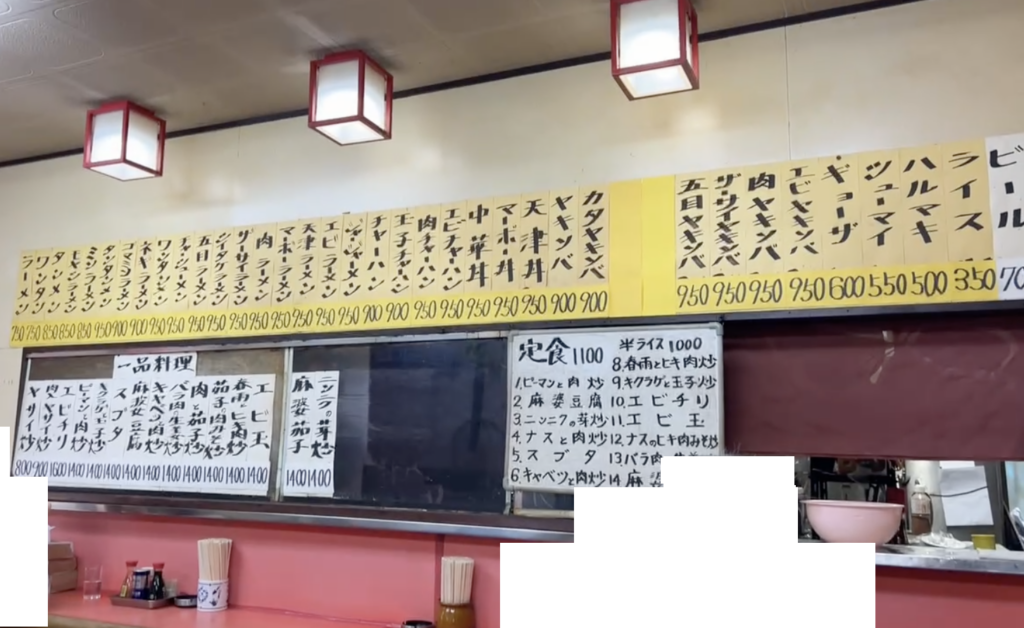 ラーメン 750
ワンタン 750
タンメン 850
モヤシラーメン 850
ミソラーメン 850
タンタンメン 950
ゴマミソラーメン 900
ネギラーメン 900
ワンタンメン 950
チャーシューメン 950
五目ラーメン 950
シイタケラーメン 950
ザーサイラーメン 950
肉ラーメン 950
マーボーラーメン 950
天津ラーメン 950
エビラーメン 950
ジャージャーメン 950
チャーハン 900
玉子チャーハン 900
肉チャーハン 950
エビチャーハン 950
中華丼 950
マーボ丼 950
天津丼 950
ヤキソバ 900
カタヤキソバ 900
五目ヤキソバ 950
ザーサイヤキソバ 950
肉ヤキソバ 950
エビヤキソバ 950
ギョーザ 600
シューマイ 550
ハルマキ 500
ライス 350
ビール 70
一品料理
ヤサイ炒 800
肉ヤサイ炒 900
エビチリ 1600
ピーマンと肉炒 1400
キクラゲと玉子炒 1400
スブタ 1400
麻婆豆腐 1400
キャベツと肉炒 1400
バラ肉の生姜炒 1400
肉と茄子炒 1400
茄子の肉みそ炒 1400
春雨とヒキ肉炒 1400
エビ玉 1400
麻婆茄子 1400
ニンニクの芽炒 1400
定食 1100
半ライス 1000
1.ピーマンと肉炒
2.麻婆豆腐
3.ニンニクの芽炒
4.ナスと肉炒
5.スブタ
6.キャベツと肉炒
8.春雨とヒキ肉炒
9.キクラゲと玉子炒
10.エビチリ
11.エビ玉
12.ナスのヒキ肉みそ炒
13.バラ肉
14.麻